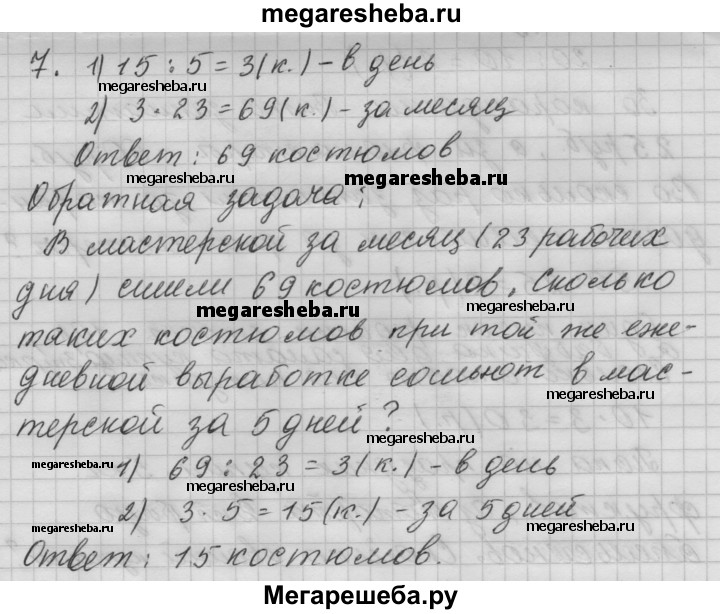 megaresheba.ru
7. 1) 15 : 5 = 3 (к.) – в день
megaresheba.ru megaresheba.ru
2) 3 · 23 = 69 (к.) – за месяц
Ответ: 69 костюмов
megaresheba.ru megaresheba.ru
Обратная задача:
В мастерской за месяц (23 рабочих
дня) сшили 69 костюмов. Сколько
megaresheba.ru megaresheba.ru
таких костюмов при той же еже-
дневной выработке сошьют в мас-
терской за 5 дней?
megaresheba.ru
megaresheba.ru
1) 69 : 23 = 3 (к.) – в день
2) 3 · 5 = 15 (к.) – за 5 дней
megaresheba.ru megaresheba.ru
Ответ: 15 костюмов.
Мегарешеба.ру